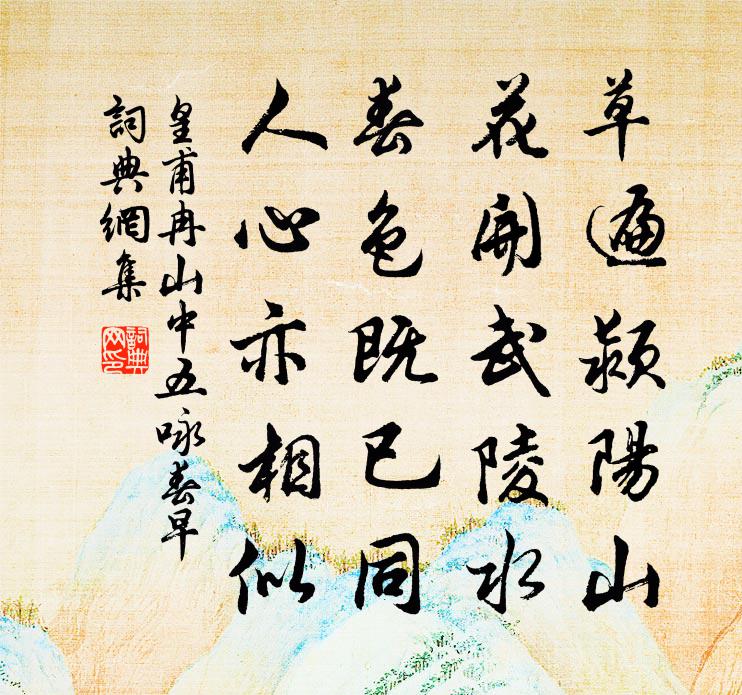 草遍潁陽山
花開武陵水
春色既已同
人心亦相似
皇甫冉山中五咏春早
詞典網集
詞典網印